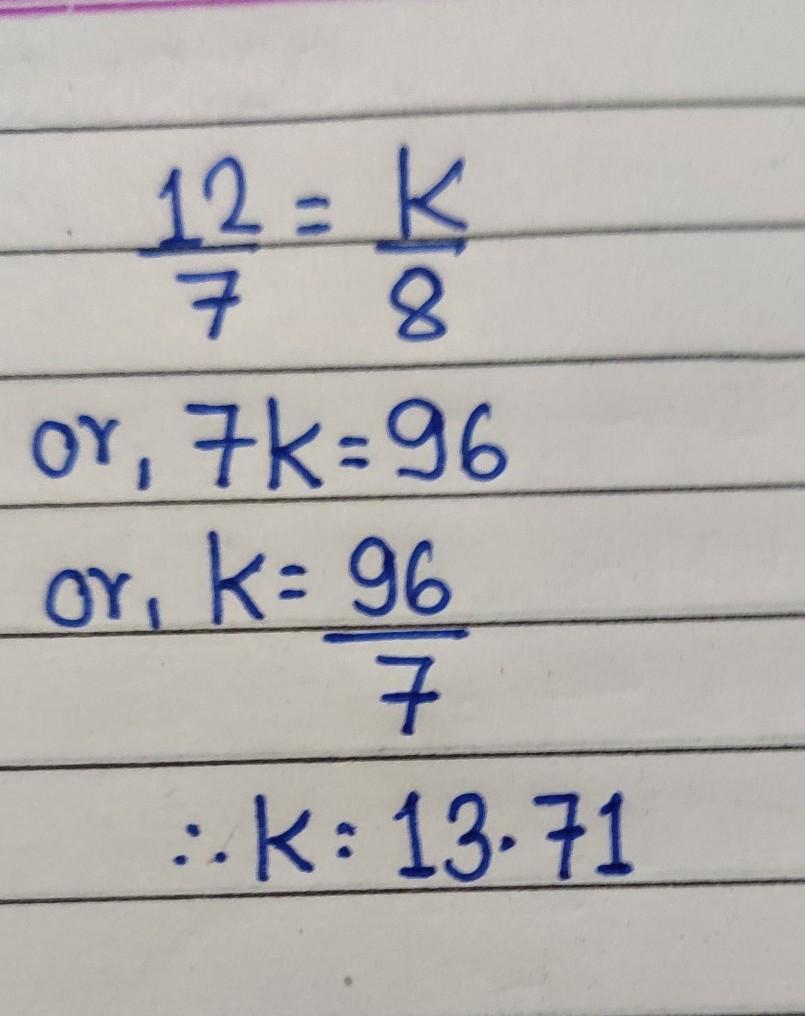 12/7 = K/8
or, 7k=96
or, k= 96/7
∴ K= 13.71